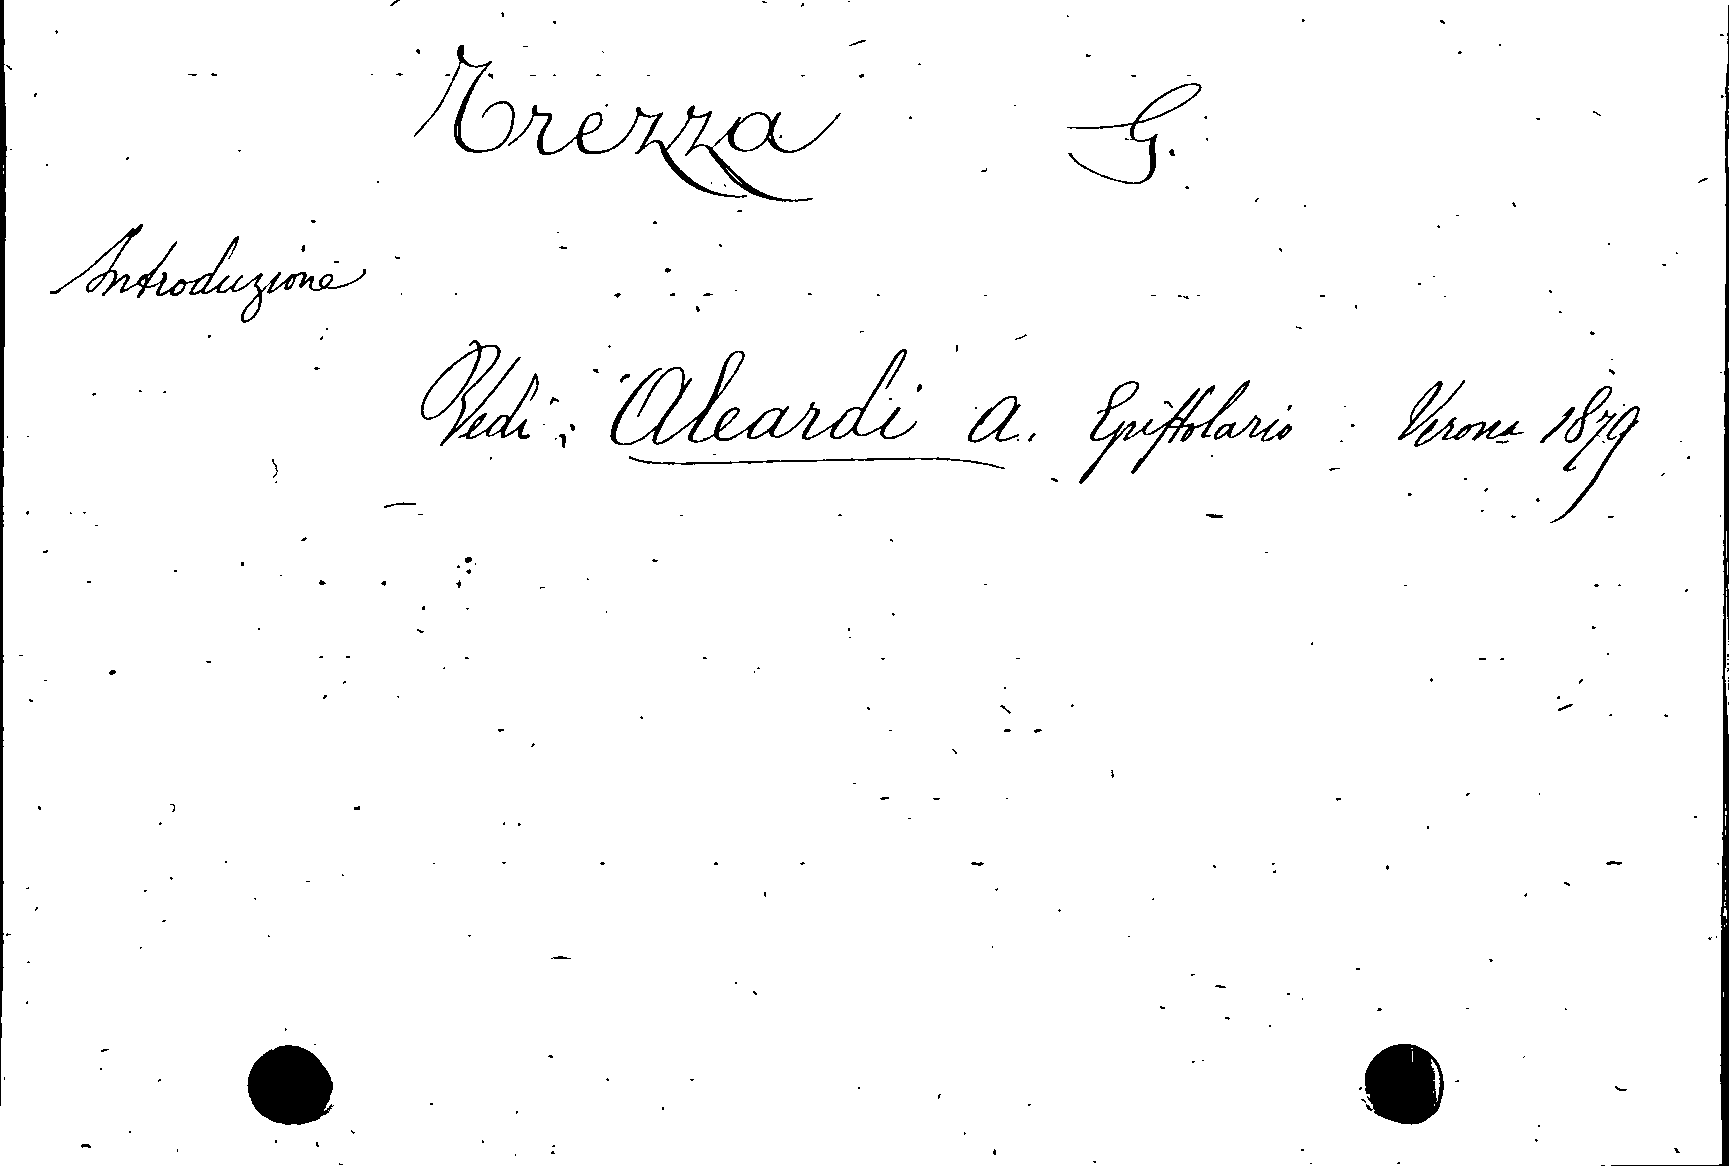 Trezza G.
Introduzione
Vedi: Aleardi A. Epistolario Verona 1879